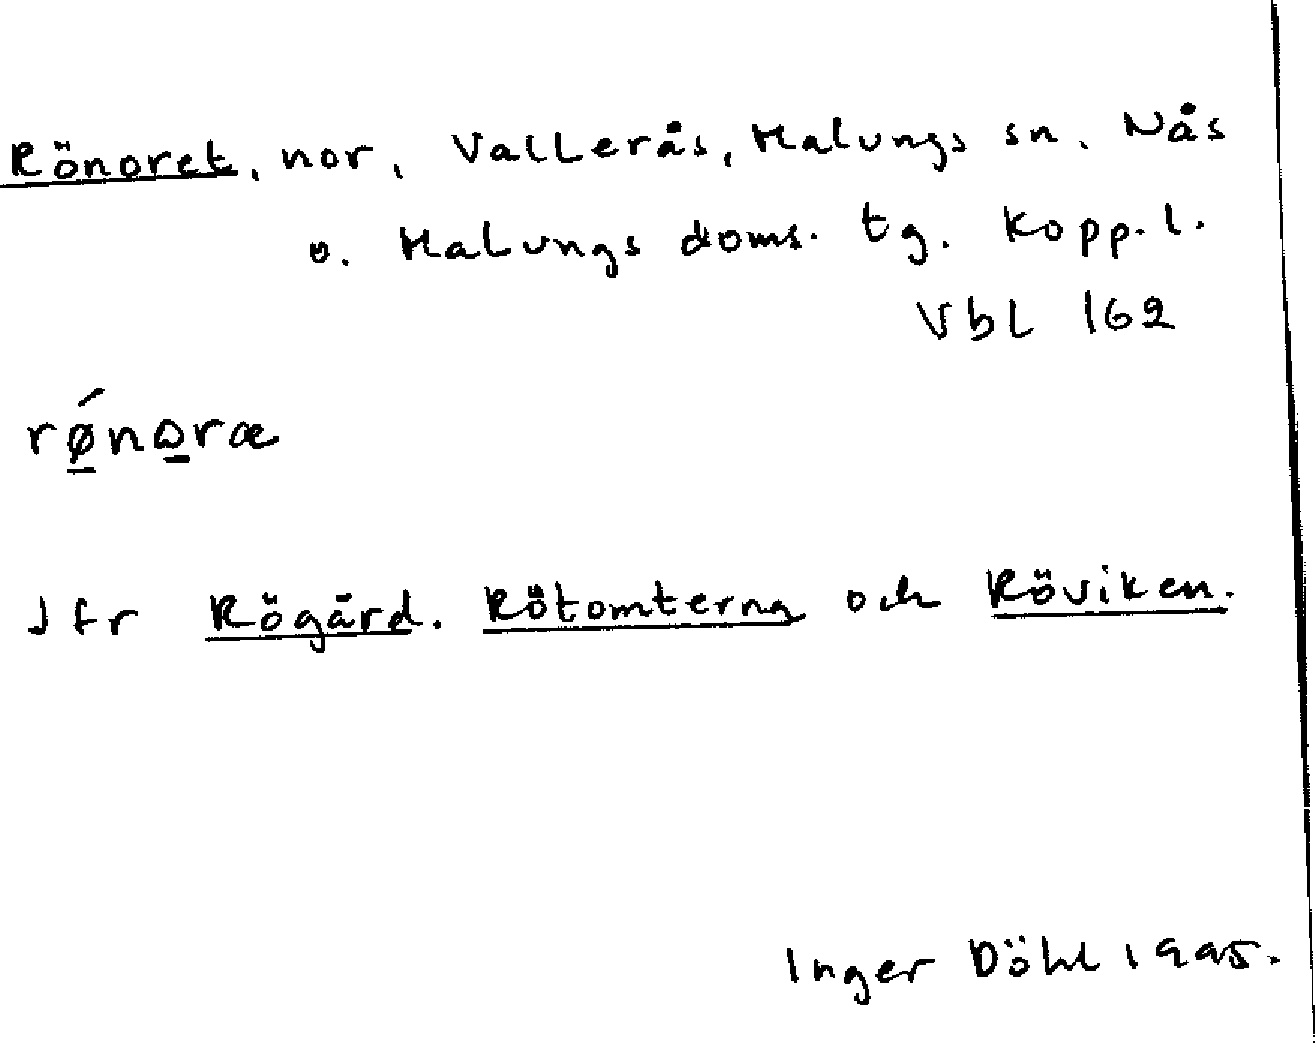 Rönoret, nor, Vallerås, Malungs sn, Nås
o. Malungs doms. tg. Kopp. l.
Vbl 162
rǿ̱no̱ræ
Jfr Rögård, Rötomterna och Röviken.
Inger Döhl 1995.